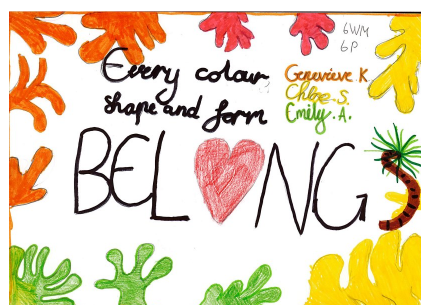 6WM
6P
Every colour
shape and form
Genevieve K
Chloe S.
Emily. A.
BELONGS